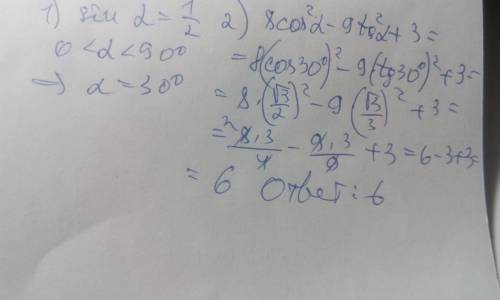 1) sin α = 1/2 2) 8cos²α - 9tg²α + 3 =
0 < α < 90°
= 8(cos30°)² - 9(tg30°)² + 3 =
=> α = 30°
= 8 · (√3/2)² - 9(√3/3)² + 3 =
= 8·3/4 - 9·3/9 + 3 = 6 - 3 + 3 =
= 6 Ответ: 6